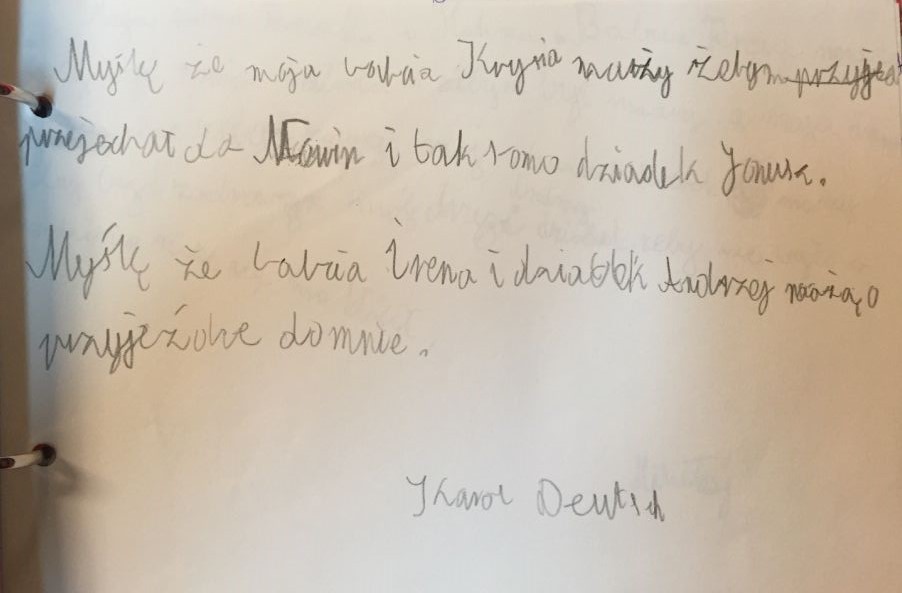 Myślę że moja babcia Krysia maży żebym przyje
przejechał do Mawin i tak samo dziadek Janusz.
Myślę że babcia Irena i dziadek Andrzej mażą o
przyjeźdke do mnie.
Karol Deutsch